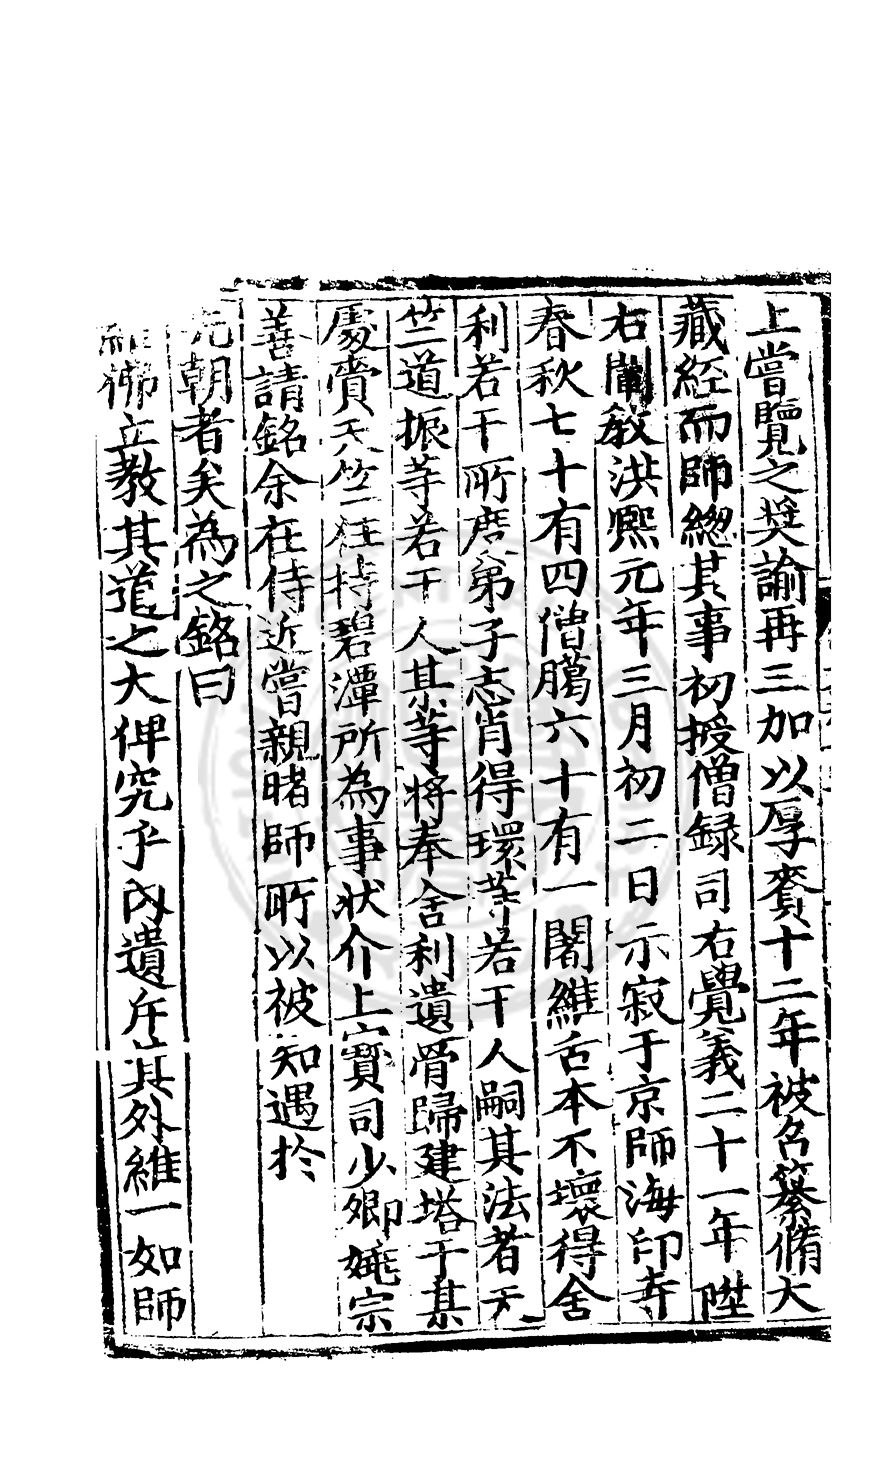 上嘗覽之奬諭再三加以厚賚十二年被召纂脩大
藏經而師緫其事初授僧録司右覺義二十一年陞
右闡教洪熙元年三月初二日示寂于京師海印寺
春秋七十有四僧臈六十有一闍維舌本不壞得舍
利若干所度弟子志肖得環等若干人嗣其法者天
竺道振等若干人某等将奉舍利遺骨歸建塔于某
處賚天竺住持碧潭所為事状介上寳司少卿姚宗
善請銘余在侍近嘗親睹師所以被知遇扵
朝者矣為之銘曰
佛立教其道之大俾究乎内遺斥其外維一如師